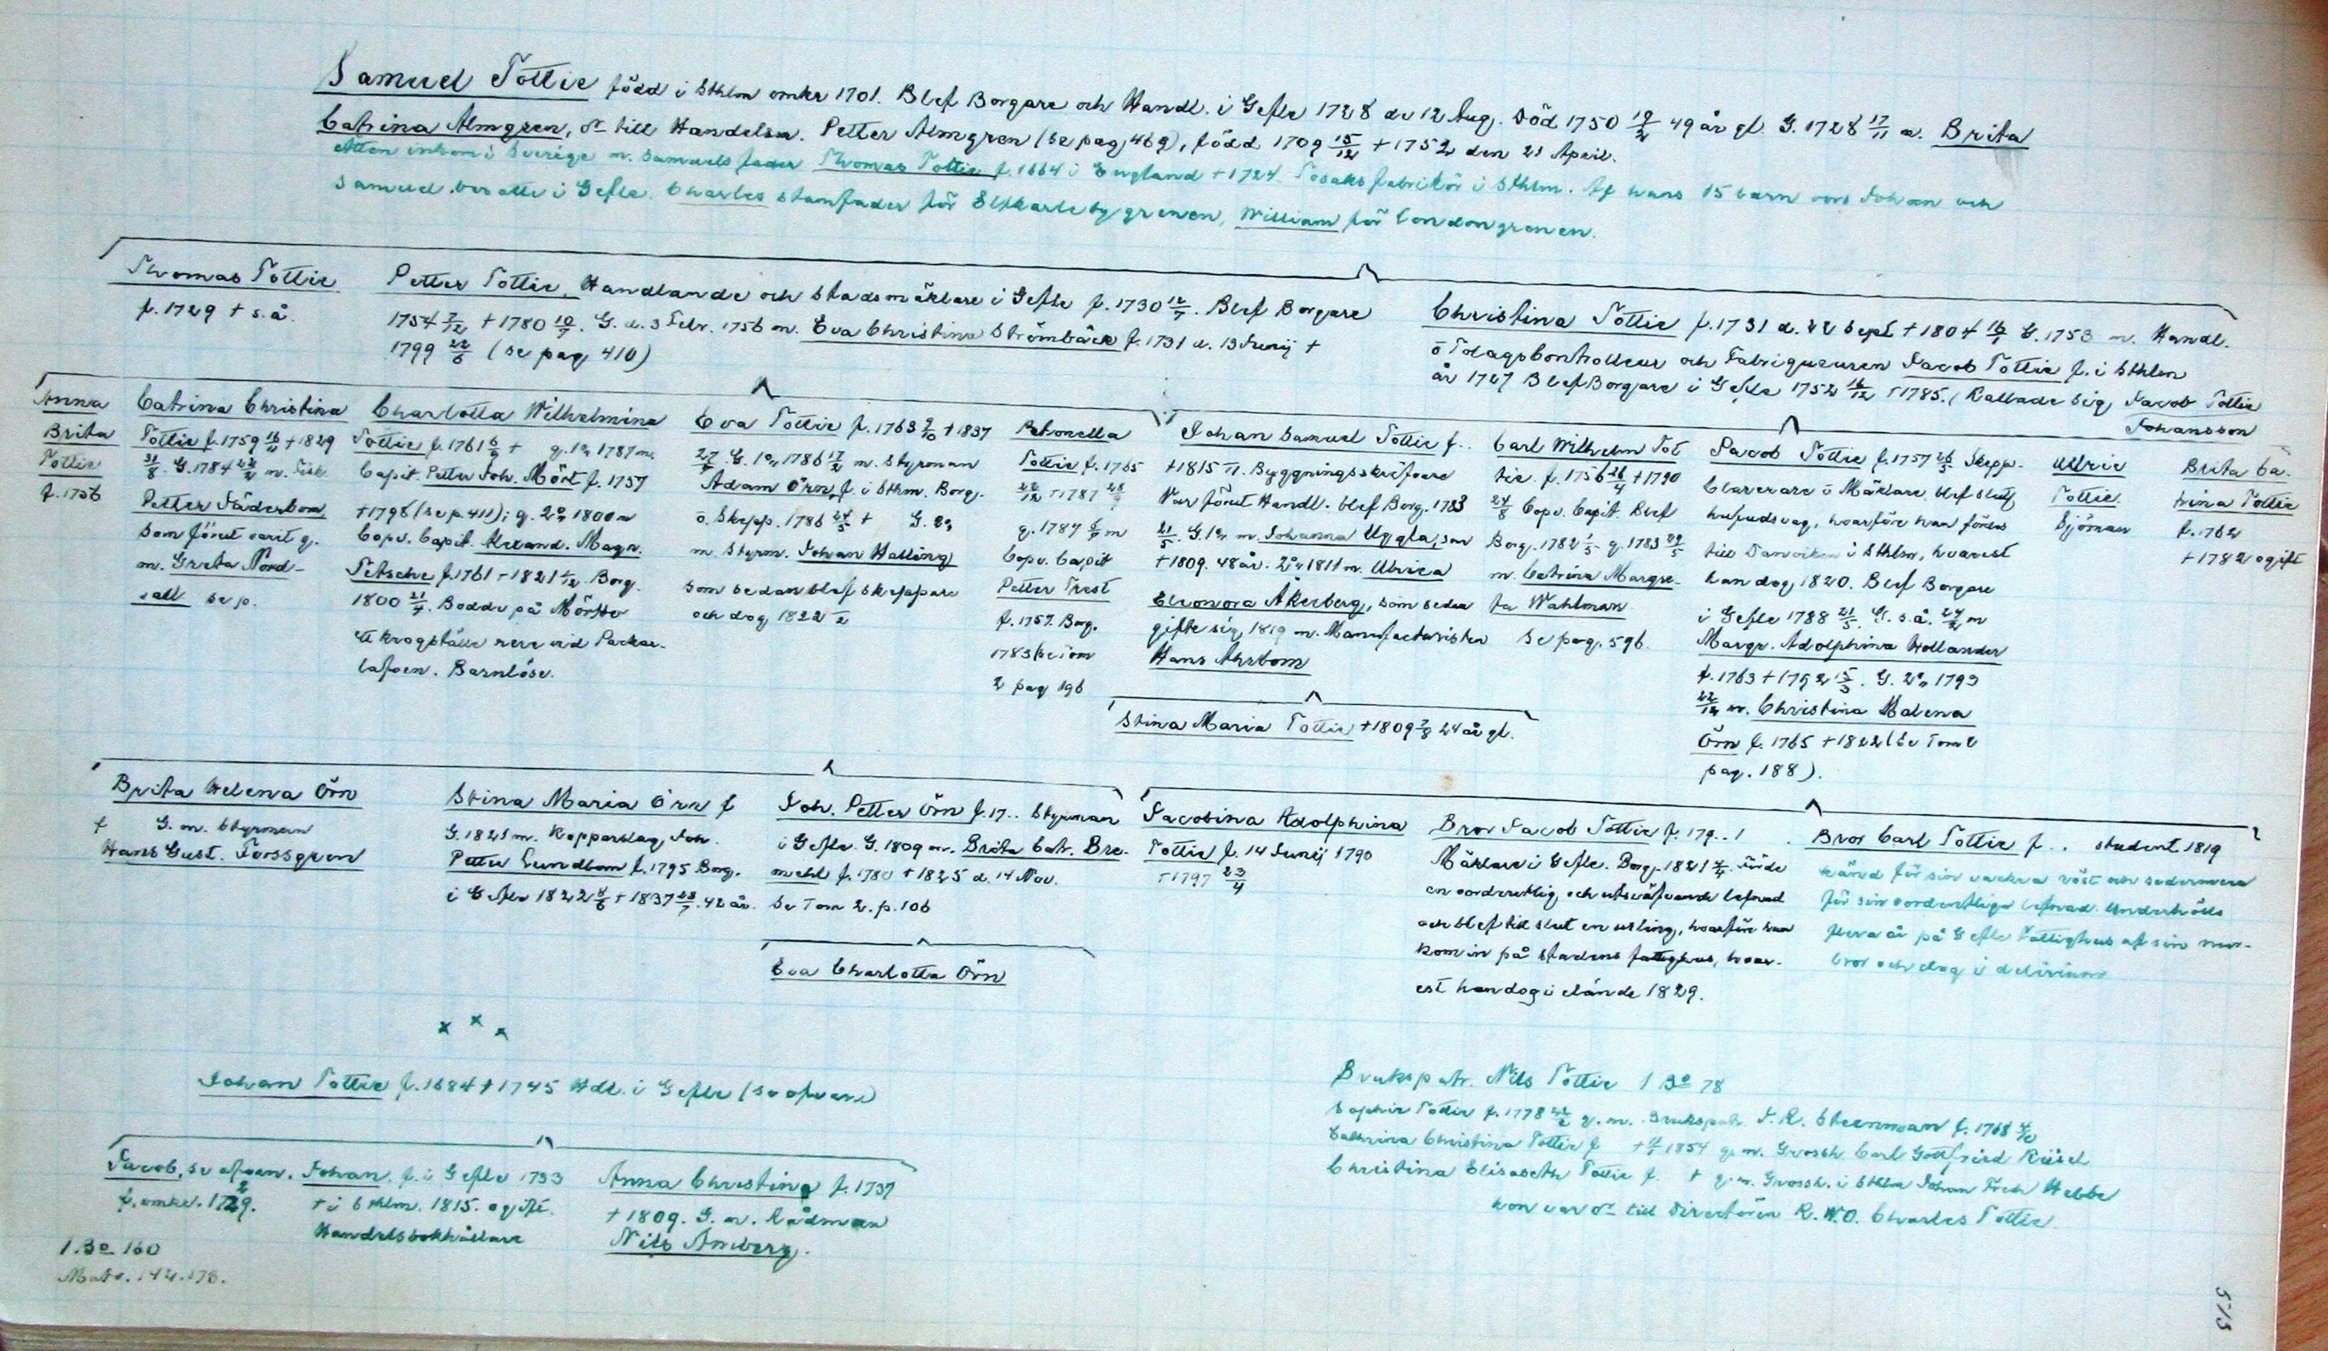 Samuel Tottie född i Sthlm omkr 1701. Blef Borgare och Handl. i Gefle 1728 du 12 Aug. Död 1750 19/2 49 år gl. G. 1728 17/11 m. Brita
Catrina Almgren, dr till Handelsm. Petter Almgren (se pag 469), född 1709 15/12 + 1752 den 21 April.
Ätten inkom i Sverige m. Samuels fader Thomas Tottie f. 1664 i England + 1724. Tobaksfabrikör i Sthlm. Af hans 15 barn voro Johan och
Samuel bosatte i Gefle. Charles stamfader för Elfkarlebygrenen, William för Londongrenen.
Thomas Tottie
f. 1729 + s.å.
Petter Tottie, Handlande och Stadsmäklare i Gefle f. 1730 12/7. Blef Borgare
1754 7/12 + 1780 10/7. G. d. 3 Febr. 1756 m. Eva Christina Strömbäck f. 1731 d. 13 Junij +
1799 22/6 (se pag 410)
Christina Tottie f. 1731 d. 22 Sept + 1804 16/1 G. 1753 m. Handl.
o Tolagskontrolleur och Fabriqueuren Jacob Tottie f. i Sthlm
år 1727 Blef Borgare i Gefle 1752 16/12 + 1785. (Kallade sig Jacob Tottie
Johansson
Anna
Brita
Tottie
f. 1756
Catrina Christina
Tottie f. 1759 16/11 + 1829
31/8. G. 1784 22/2 m. Fisk.
Petter Söderbom
som förut varit g.
m. Greta Nord-
vall se p.
Charlotta Wilhelmina
Tottie f. 1761 6/2 + g. 1o 1787 m.
Capit. Petter Joh. Mört f. 1757
+ 1798 (se p. 411); g. 2o 1800 m
Copv. Capit. Alexand. Magn.
Fitsche f. 1761 + 1821 1/12 Borg.
1800 21/4. Bodde på Mörtho
krogställe nere vid Packar-
lafven. Barnlöse.
Eva Tottie f. 1763 2/10 + 1837
27/7 G. 1o 1786 17/2 m. Styrman
Adam Örn, f. i Sthm. Borg.
o. Skepp. 1786 24/5 + G. 2o
m. Styrm. Johan Halling
som sedan blef skeppare
och dog 1822
Petronella
Tottie f. 1765
22/12 + 1787
g. 1784 m
Copv. Capit
Petter Trast
f. 1757. Borg.
1783 se tom
2 pag 196
Johan Samuel Tottie f..
+ 1815. Byggningsskrifvare
Var förut Handl. blef Borg. 1783
21/5. G. 1o m. Johanna Uggla, som
+ 1809. 48 år. 2o 1811 m. Ulrica
Eleonora Åkerberg, som sedan
gifte sig 1819 m. Manufacturisten
Hans Ahrbom
Carl Wilhelm Tot
tie. f. 1756 26/4 + 1790
24/8 Copv. Capit. Blef
Borg. 1782 1/5 g. 1783 29/5
m. Catrina Margre-
ta Wahlman
Se pag. 596.
Jacob Tottie f. 1757 26/5 Skepp-
clarerare o Mäklare, blef slutl.
hufvudsvag, hvarföre han fördes
till Danviken i Sthlm, hvarest
han dog 1820. Blef Borgare
i Gefle 1788 21/5. G. s.å. 24/2 m
Margr. Adolphina Hollander
f. 1763 + 1792 15/3. G. 2o 1793
22/12 m. Christina Malena
Örn f. 1765 + 1822 (Se Tom 2
pag. 188).
Ulric
Tottie.
Sjöman
Brita Ca-
trina Tottie
f. 1762
+ 1782 ogift
Stina Maria Tottie + 1809 7/8 24 år gl.
Brita Helena Örn
f G. m. Styrman
Hans Gust. Forssgren
Stina Maria Örn f
G. 1821 m. Kopparslag. Joh.
Petter Lundbom f. 1795 Borg.
i Gefle 1822 8/6 + 1837 28/7. 42 år.
Joh. Petter Örn f. 17.. Styrman
i Gefle. G. 1809 m. Brita Catr. Bre-
mehl f. 1780 + 1825 d. 14 Nov.
Se Tom 2. p. 106
Eva Charlotta Örn
Jacobina Adolphina
Tottie f. 14 Junij 1790
+ 1797 23/4
Bror Jacob Tottie f. 179..
Mäklare i Gefle. Borg. 1821. Förde
en oordentlig och utsväfvande lefnad
och blef till slut en usling, hvarför han
kom in på stadens fattighus, hvar-
est han dog i elände 1829.
Bror Carl Tottie f .. student 1819
känd för sin vackra röst och sedermera
för sin oordentliga lefnad. Underhölls
flera år på Gefle Fattighus af sin mor-
bror och dog i delirium
x x x
Johan Tottie f. 1684 + 1745 Hdl. i Gefle (se ofvan)
Jacob, se ofvan.
f. omkr. 1729.
Johan, f. i Gefle 1733
+ i Sthlm. 1815. ogift.
Handelsbokhållare
Anna Christina f. 1737
+ 1809. G. m. Rådman
Nils Amberg.
Brukspatr. Nils Tottie 1 Bo 78
Sophie Tottie f. 1778 g. m. Brukspatr. J. R. Steenman f. 1768
Cathrina Christina Tottie f + 1854 g. m. Grossh. Carl Gottfried Küsel
Christina Elisabeth Tottie f. + g. m. Grossh. i Sthlm Johan Fredr Hebbe
hon var dr till Directören R. W. O. Charles Tottie.
1. Bo 160
Matr. 142.178.
513